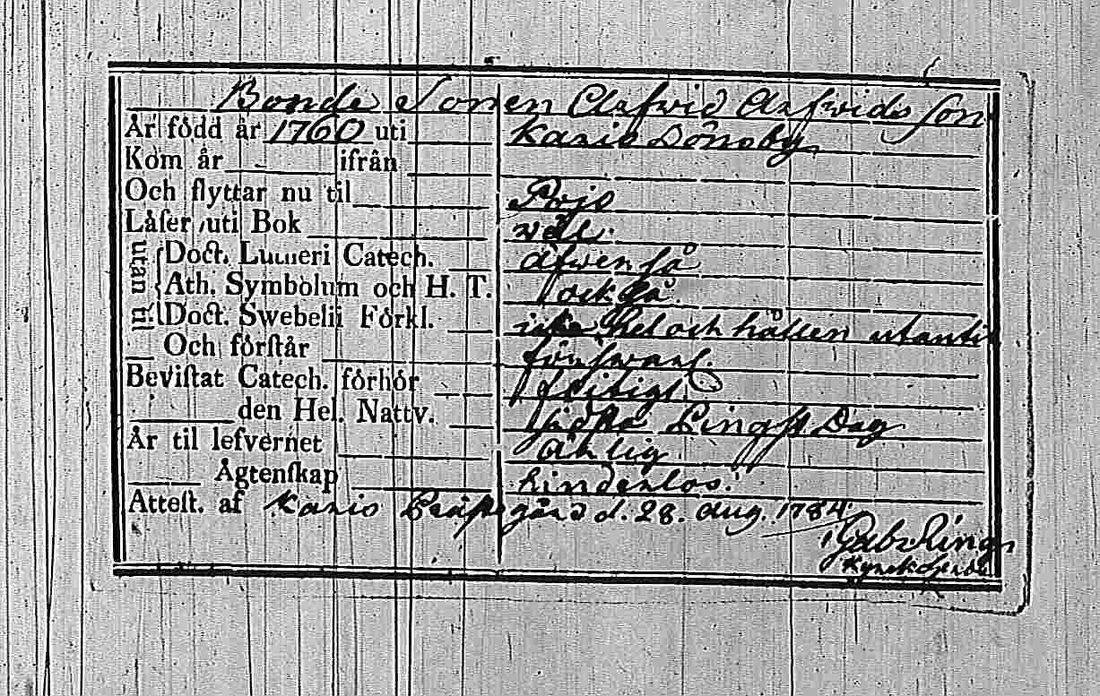 Bonde Sonen Clafwid Clafwids Son
År född år 1760 uti Karis Dönsby
Kom år ifrån
Och flyttar nu til Pojo
Läser uti Bok väl
utan til Doct. Lutheri Catech. äfwen så
Ath. Symbolum och H. T. ock så
Doct. Swebelii Förkl. icke hel och hållen utantil
Och förstår försvarl.
Bevistat Catech. förhör flitigt
den Hel. Nattv. sidsta Pingst Dag
År til lefvernet Ährlig
Ägtenskap hinderlös.
Attest. af Karis Prästgård d. 28. Aug. 1784
Gabr.